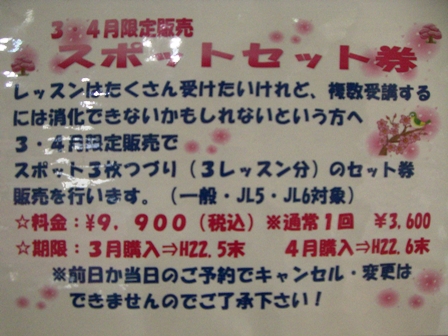 3．4月限定販売
スポットセット券
レッスンはたくさん受けたいけれど、複数受講する
には消化できないかもしれないという方へ
3・4月限定販売で
スポット3枚つづり（3レッスン分）のセット券
販売を行います。（一般・JL5・JL6対象）
☆料金：¥9，900（税込）※通常1回　¥3,600
☆期限：3月購入⇒H22.5末　　4月購入⇒H22.6末
※前日か当日のご予約でキャンセル・変更は
できませんのでご了承下さい！